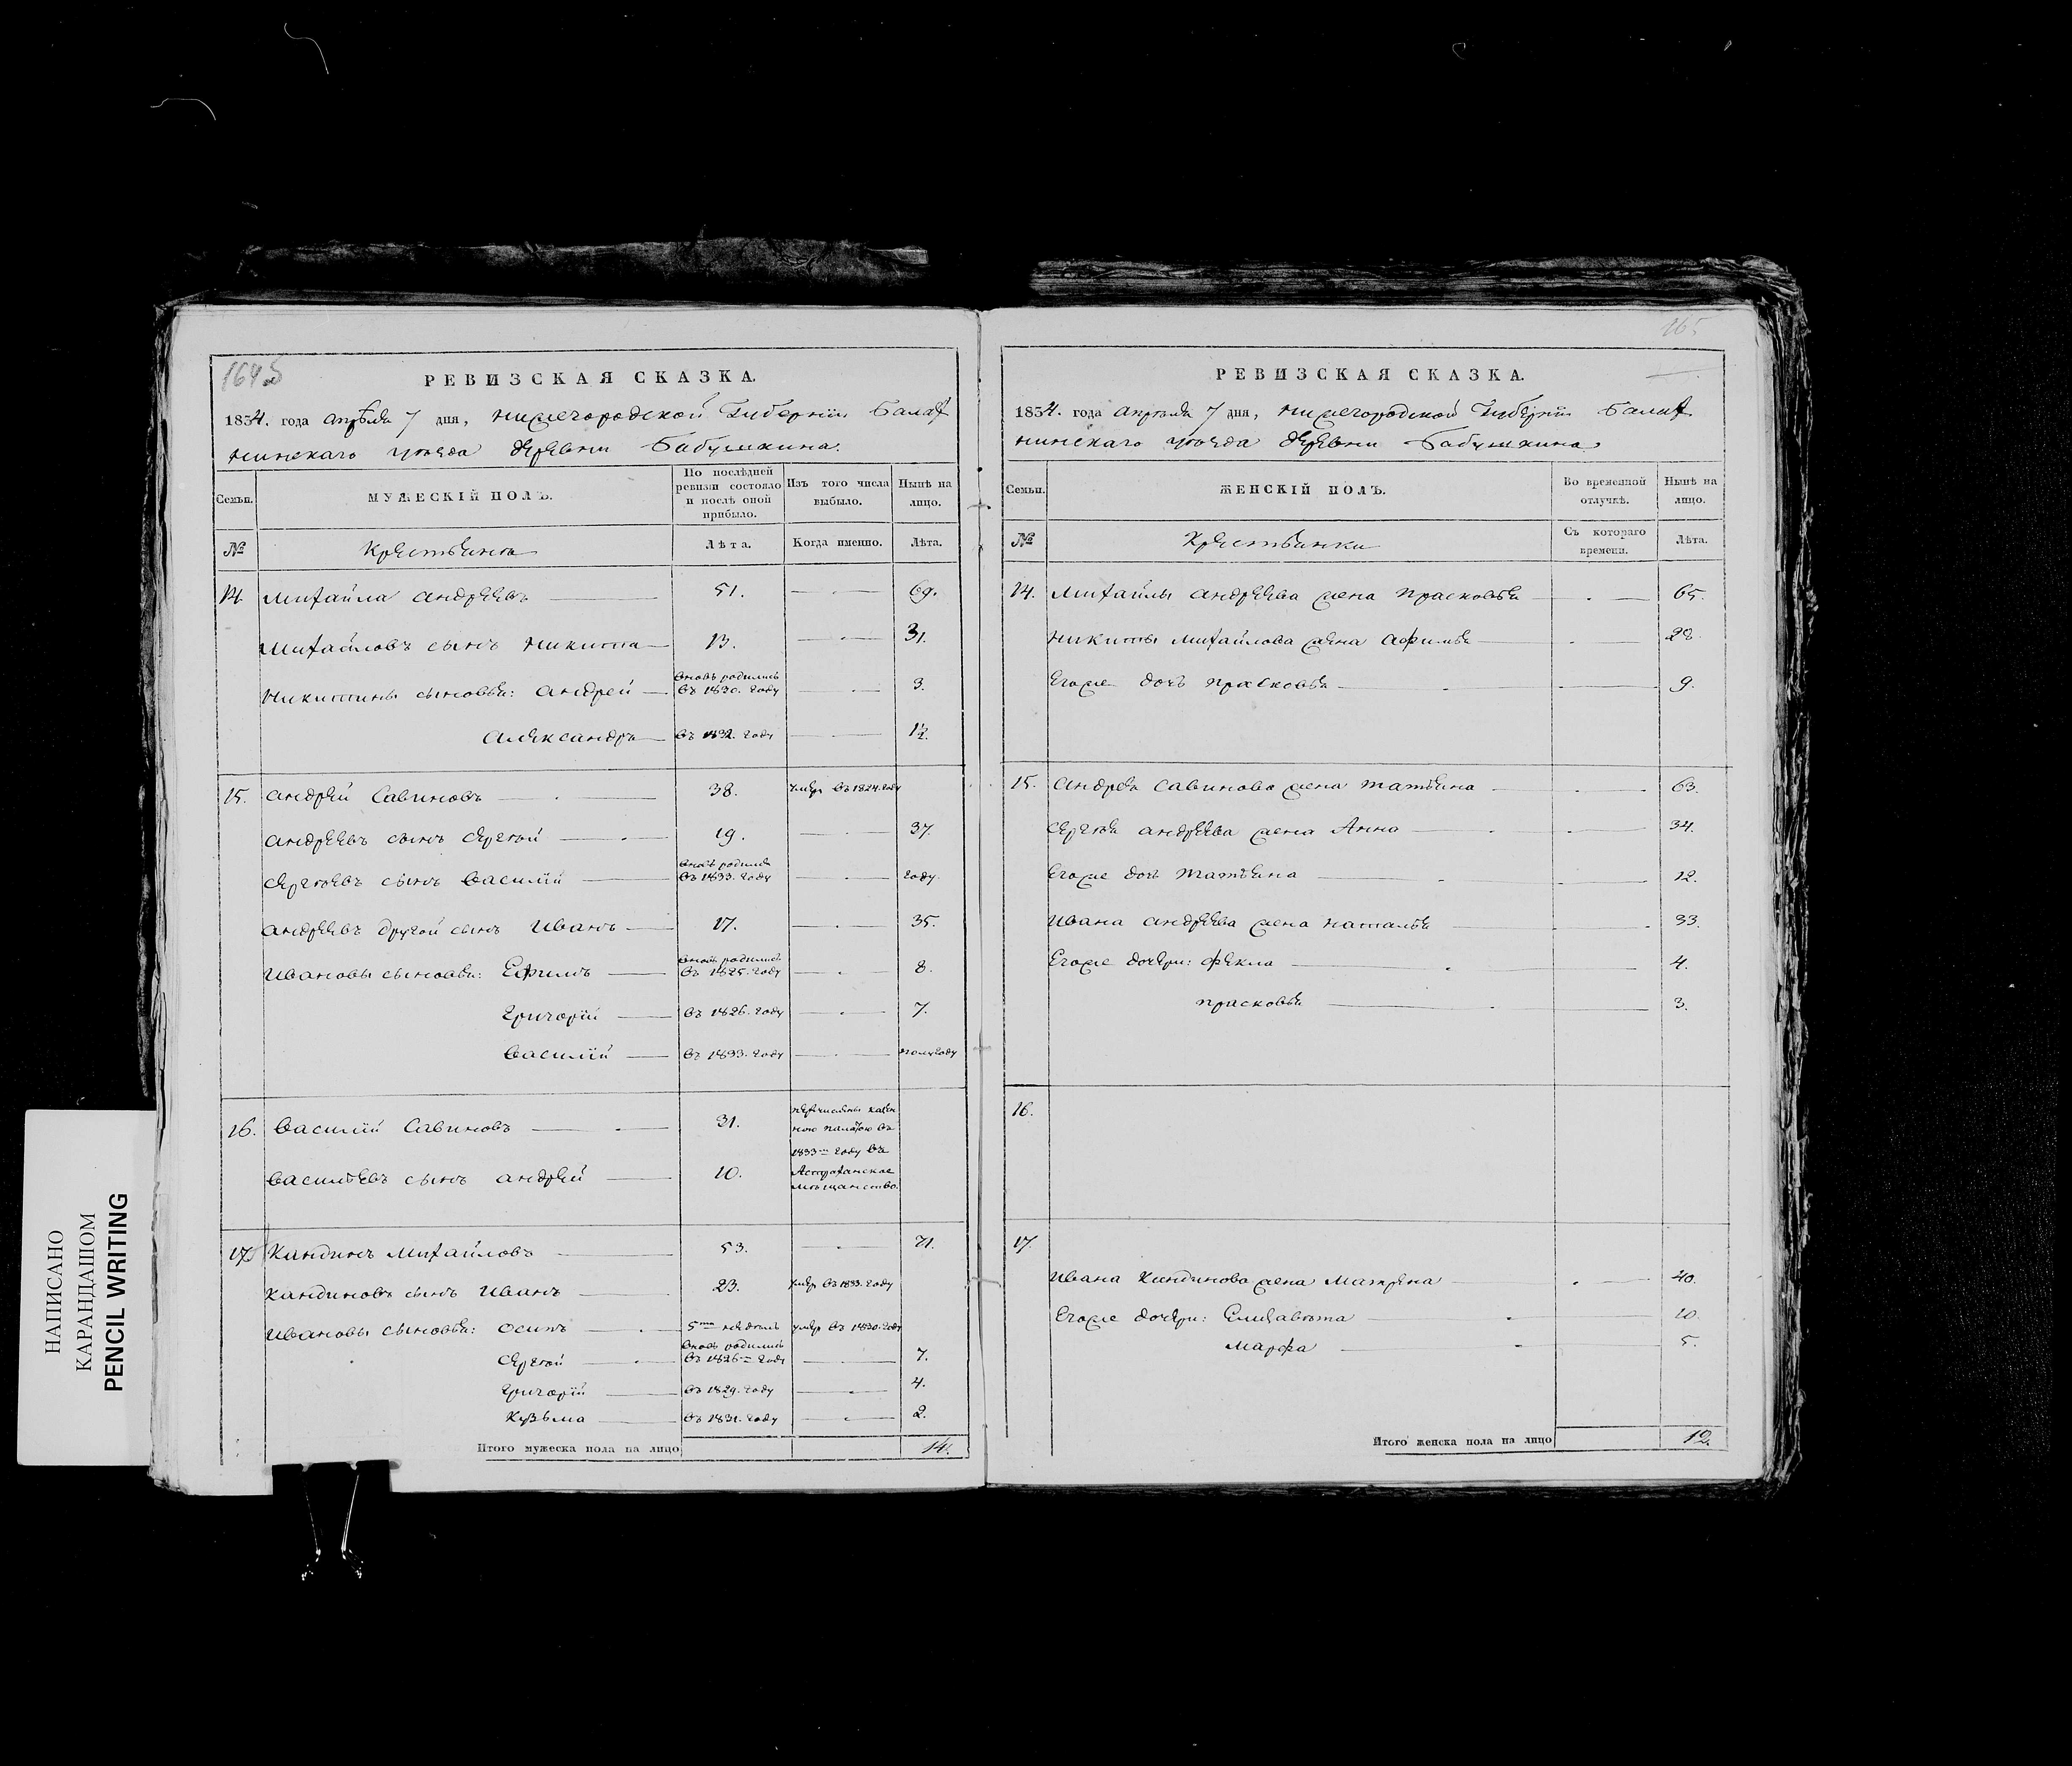 НАПИСАНО
КАРАНДАШОМ
PENCIL WRITING
164 об
РЕВИЗСКАЯ СКАЗКА.
1834. года апреля 7 дня, нижегородской Губернiи Балах
нинскаго уѣзда деревни Бабушкина.
Семьи. МУЖЕСКIЙ ПОЛЪ. По послѣдней ревизiи состояло и послѣ оной прибыло. Изъ того числа выбыло. Нынѣ на лицо.
№ Крестьянъ Лѣта. Когда именно. Лѣта.
14. Михайла андреевъ 51. 69.
Михайловъ сынъ никита 13. 31.
Никитины сыновья: андрей вновь родились въ 1830. году 3.
александръ въ 1832. году 1½.
15. андрей Савиновъ 38. умер въ 1824. году
андреевъ сынъ сергей 19. 37.
сергеевъ сынъ василiй вновь родился въ 1833. году году.
андреевъ другой сынъ Иванъ 17. 35.
Ивановы сыновья: Ефимъ вновь родились въ 1825. году 8.
григорiй въ 1826. году 7.
василiй въ 1833. году полугоду
16. василiй Савиновъ 31. перечислены казен
ною палатою въ
1833м году въ
василiевъ сынъ андрей 10. Астраханское
мѣщанство.
17. Киндинъ Михайловъ 53. 71.
Киндиновъ сынъ Иванъ 23. умер въ 1833. году
Ивановы сыновья: осипъ 5ти недель умер въ 1830. году
сергей вновь родились въ 1826м году 7.
григорiй въ 1829. году 4.
Кузьма въ 1831. году 2.
Итого мужеска пола на лицо 14.
165
РЕВИЗСКАЯ СКАЗКА.
1834. года апреля 7 дня, нижегородской Губернiи Балах
нинскаго уѣзда деревни Бабушкина
Семьи. ЖЕНСКIЙ ПОЛЪ. Во временной отлучкѣ. Нынѣ на лицо.
№ Крестьянки Съ котораго времени. Лѣта.
14. Михайлы андреева жена прасковья 65.
никиты михайлова жена афимья 28.
Егоже дочь прасковья 9.
15. андрея Савинова жена татьяна 63.
сергея андреева жена Анна 34.
Егоже дочь татьяна 12.
Ивана андреева жена наталья 33.
Егоже дочери: фекла 4.
прасковья 3.
16.
17.
Ивана Киндинова жена матрена 40.
Егоже дочери: Елизавета 10.
марфа 5.
Итого женска пола на лицо 12.